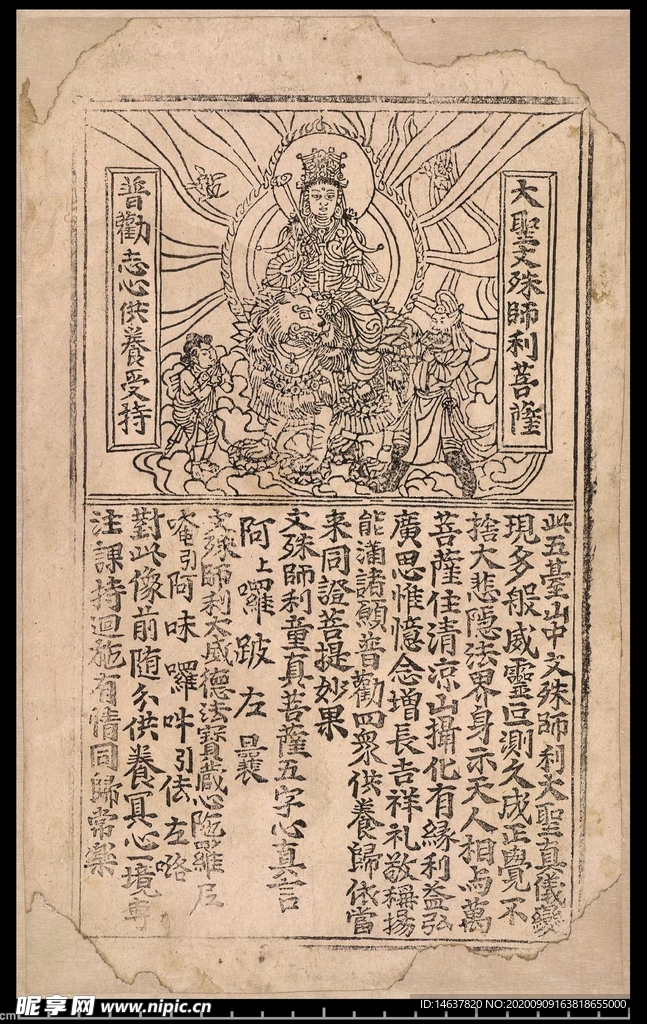 大聖文殊師利菩薩
普勸志心供養受持
此五臺山中文殊師利大聖真儀變
現多般威靈叵測久成正覺不
捨大悲隱法界身示天人相与萬
菩薩住清凉山攝化有緣利益弘
廣思惟憶念增長吉祥礼敬稱揚
能滿諸願普勸四衆供養歸依當
来同證菩提妙果
文殊師利童真菩薩五字心真言
阿上囉跛左曩
文殊師利大威德法寶藏心陁羅尼
唵引阿味囉𤙖引佉左咯
對此像前随分供養冥心一境專
注課持迴施有情同歸常樂
昵享网 www.nipic.cn
ID:14637820 NO:20200909163818655000
cm